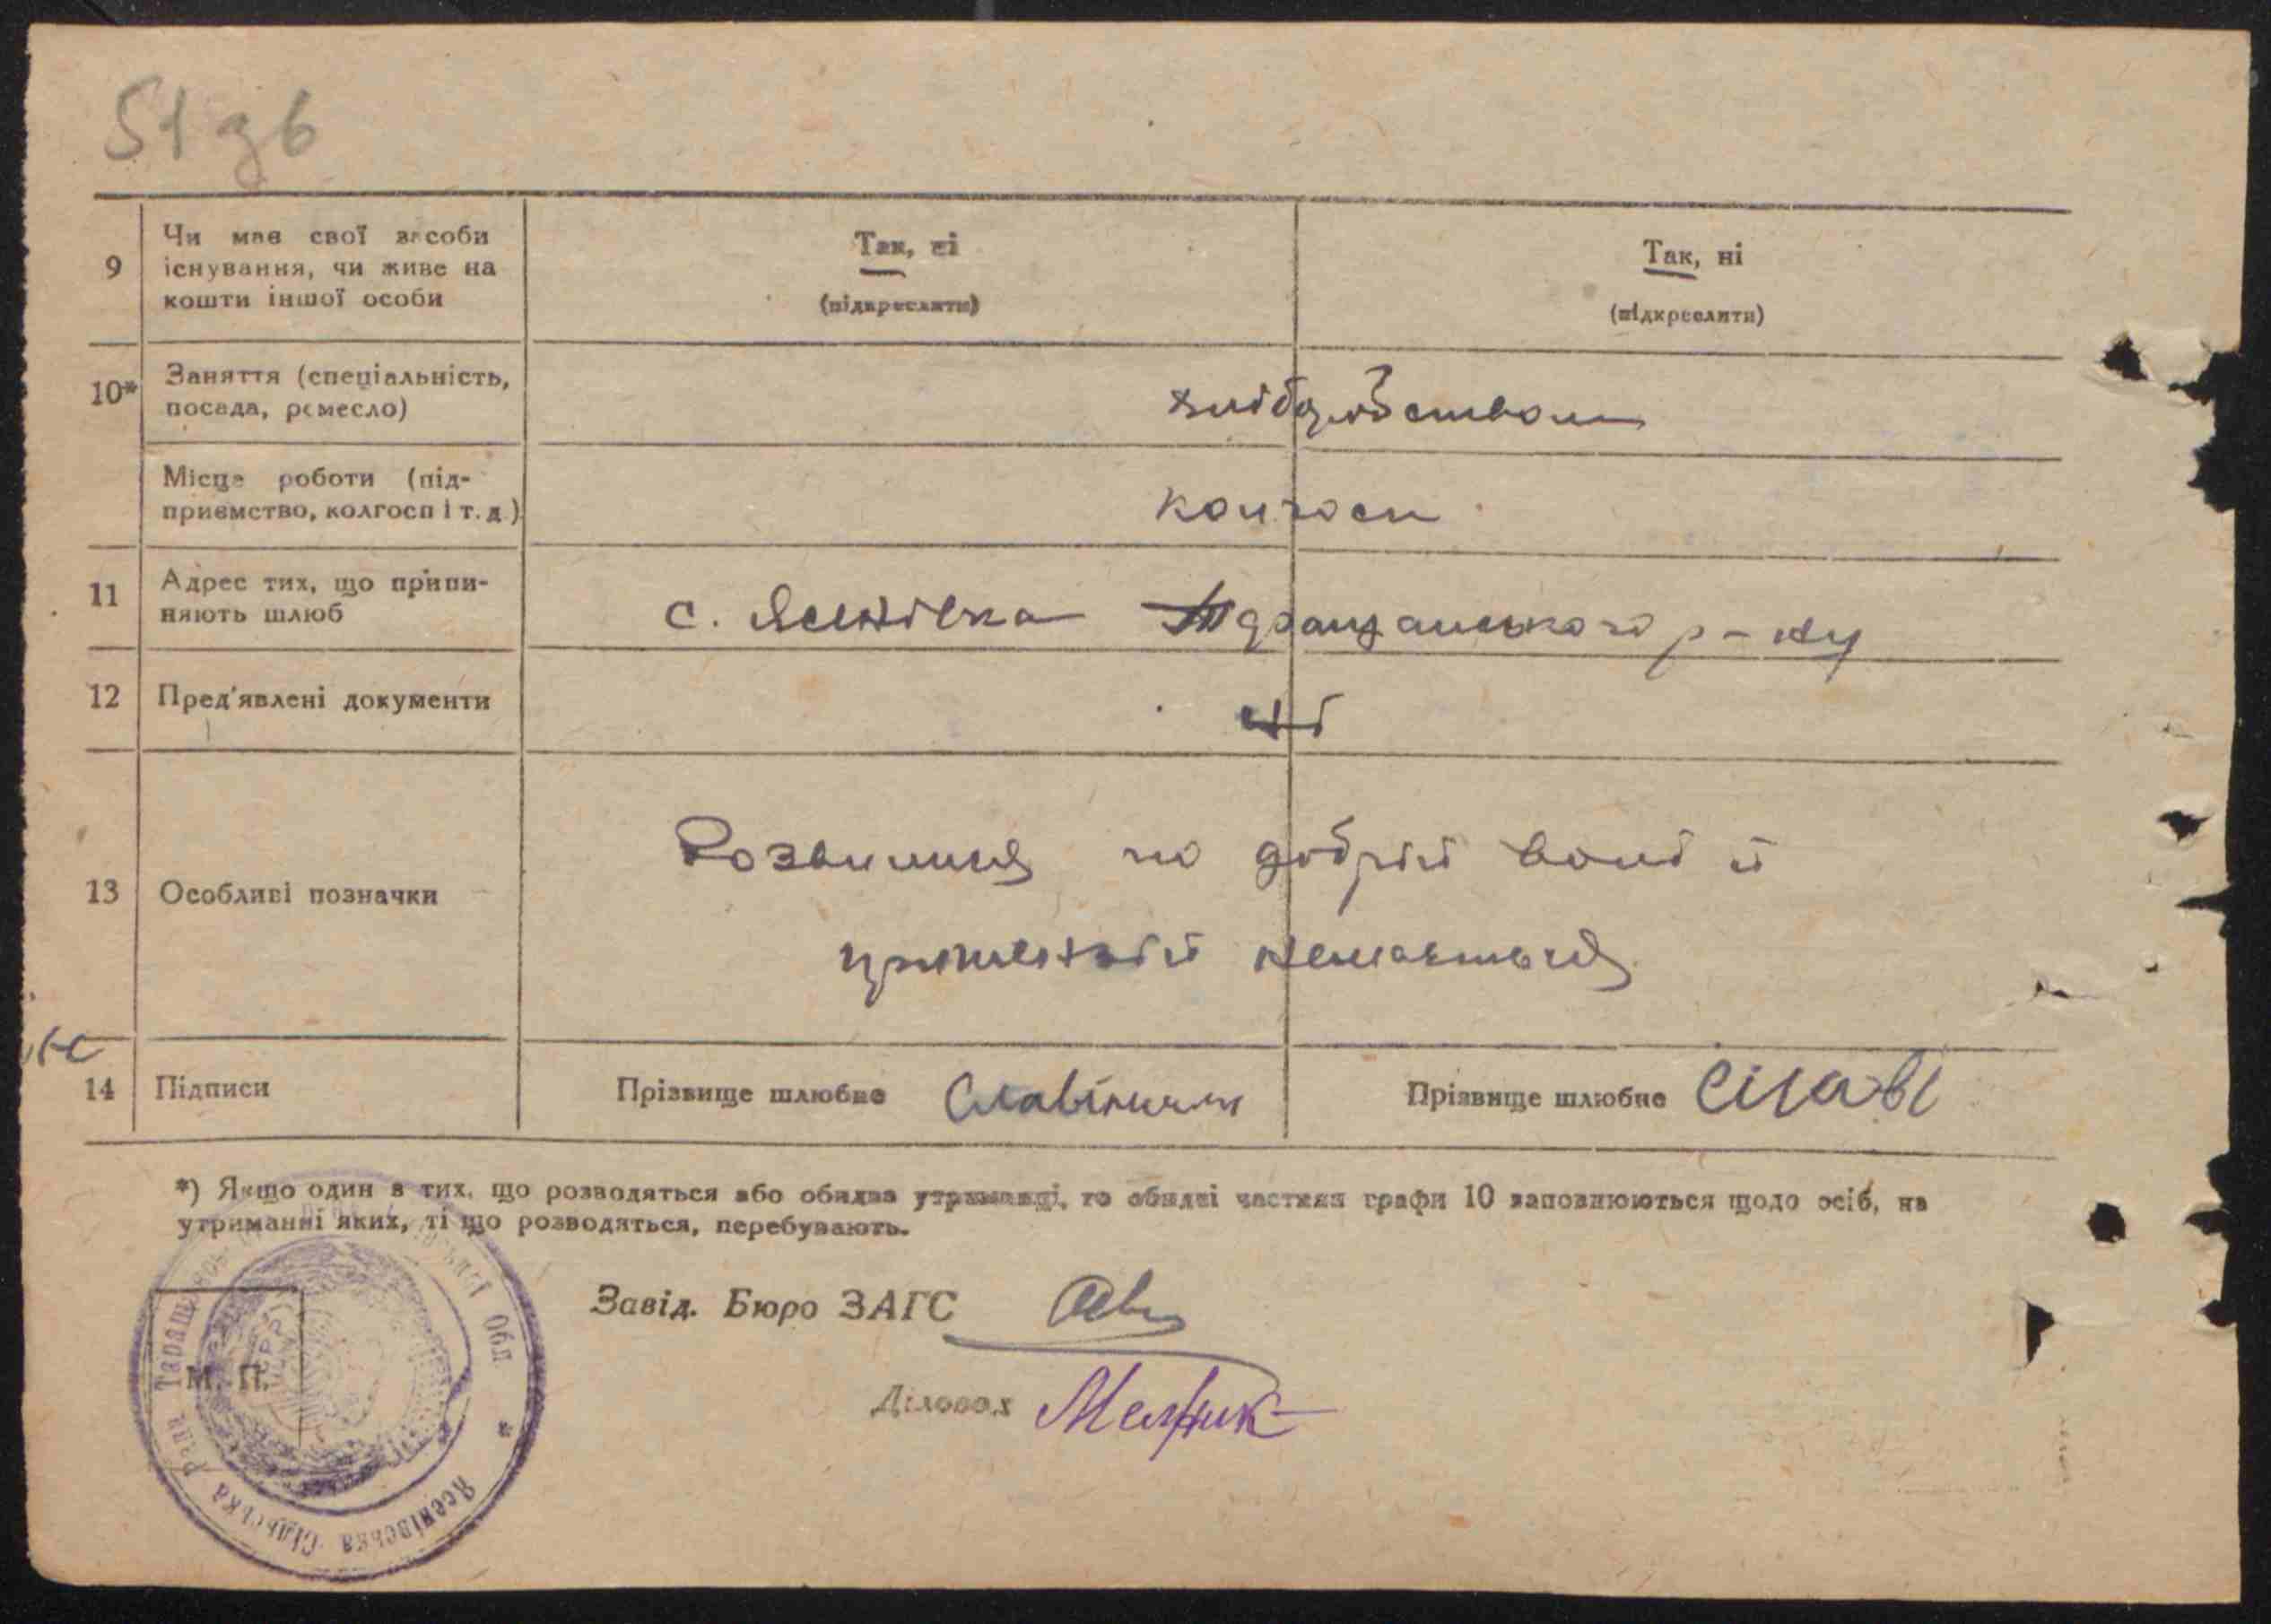 51 зв
9
Чи має свої засоби
існування, чи живе на
кошти іншої особи
Так, ні
(підкреслити)
Так, ні
(підкреслити)
10*
Заняття (спеціальність,
посада, ремесло)
хліборобством
Місце роботи (під-
приємство, колгосп і т. д.)
колгосп
11
Адрес тих, що припи-
няють шлюб
с. Ясенівка Таращанського р-ну
12
Пред'явлені документи
13
Особливі позначки
Розвилися по добрій волі й
притензій немається
14
Підписи
Прізвище шлюбне
Прізвище шлюбне
*) Якщо один з тих, що розводяться або обидва утриманці, то обидві частини графи 10 заповнюються щодо осіб, на
утриманні яких, ті що розводяться, перебувають.
Завід. Бюро ЗАГС
Діловод Мельник
М. П.
Ясенівська Сільська Рада Таращ Обл.